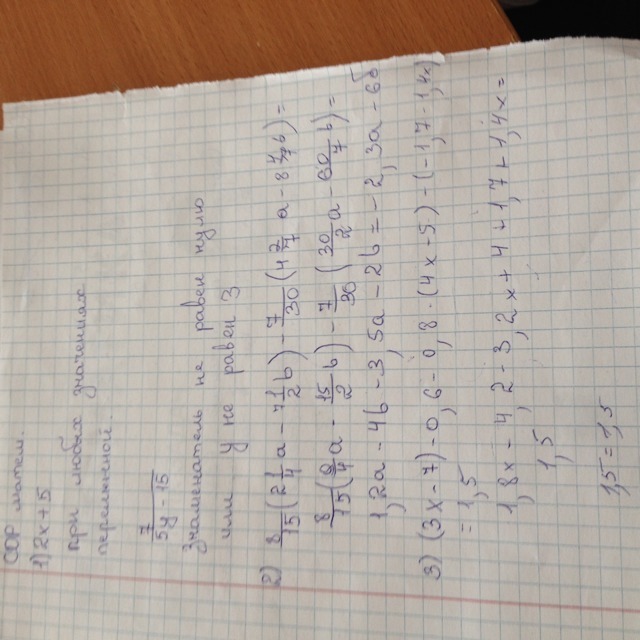 СОР матем.
1) 2x+5
при любых значениях
переменной.
7/(5y-15)
Знаменатель не равен нулю
или y не равен 3
2) 8/15(2 1/4 a - 7 1/2 b) - 7/30(4 2/7 a - 8 4/7 b) =
8/15(9/4 a - 15/2 b) - 7/30(30/2 a - 60/7 b) =
1,2a - 4b - 3,5a - 2b = -2,3a - 6b
3) (3x-7)-0,6-0,8·(4x-5)-(-1,7-1,4x)
= 1,5
1,8x - 4,2 - 3,2x + 4 + 1,7 + 1,4x =
1,5
1,5 = 1,5